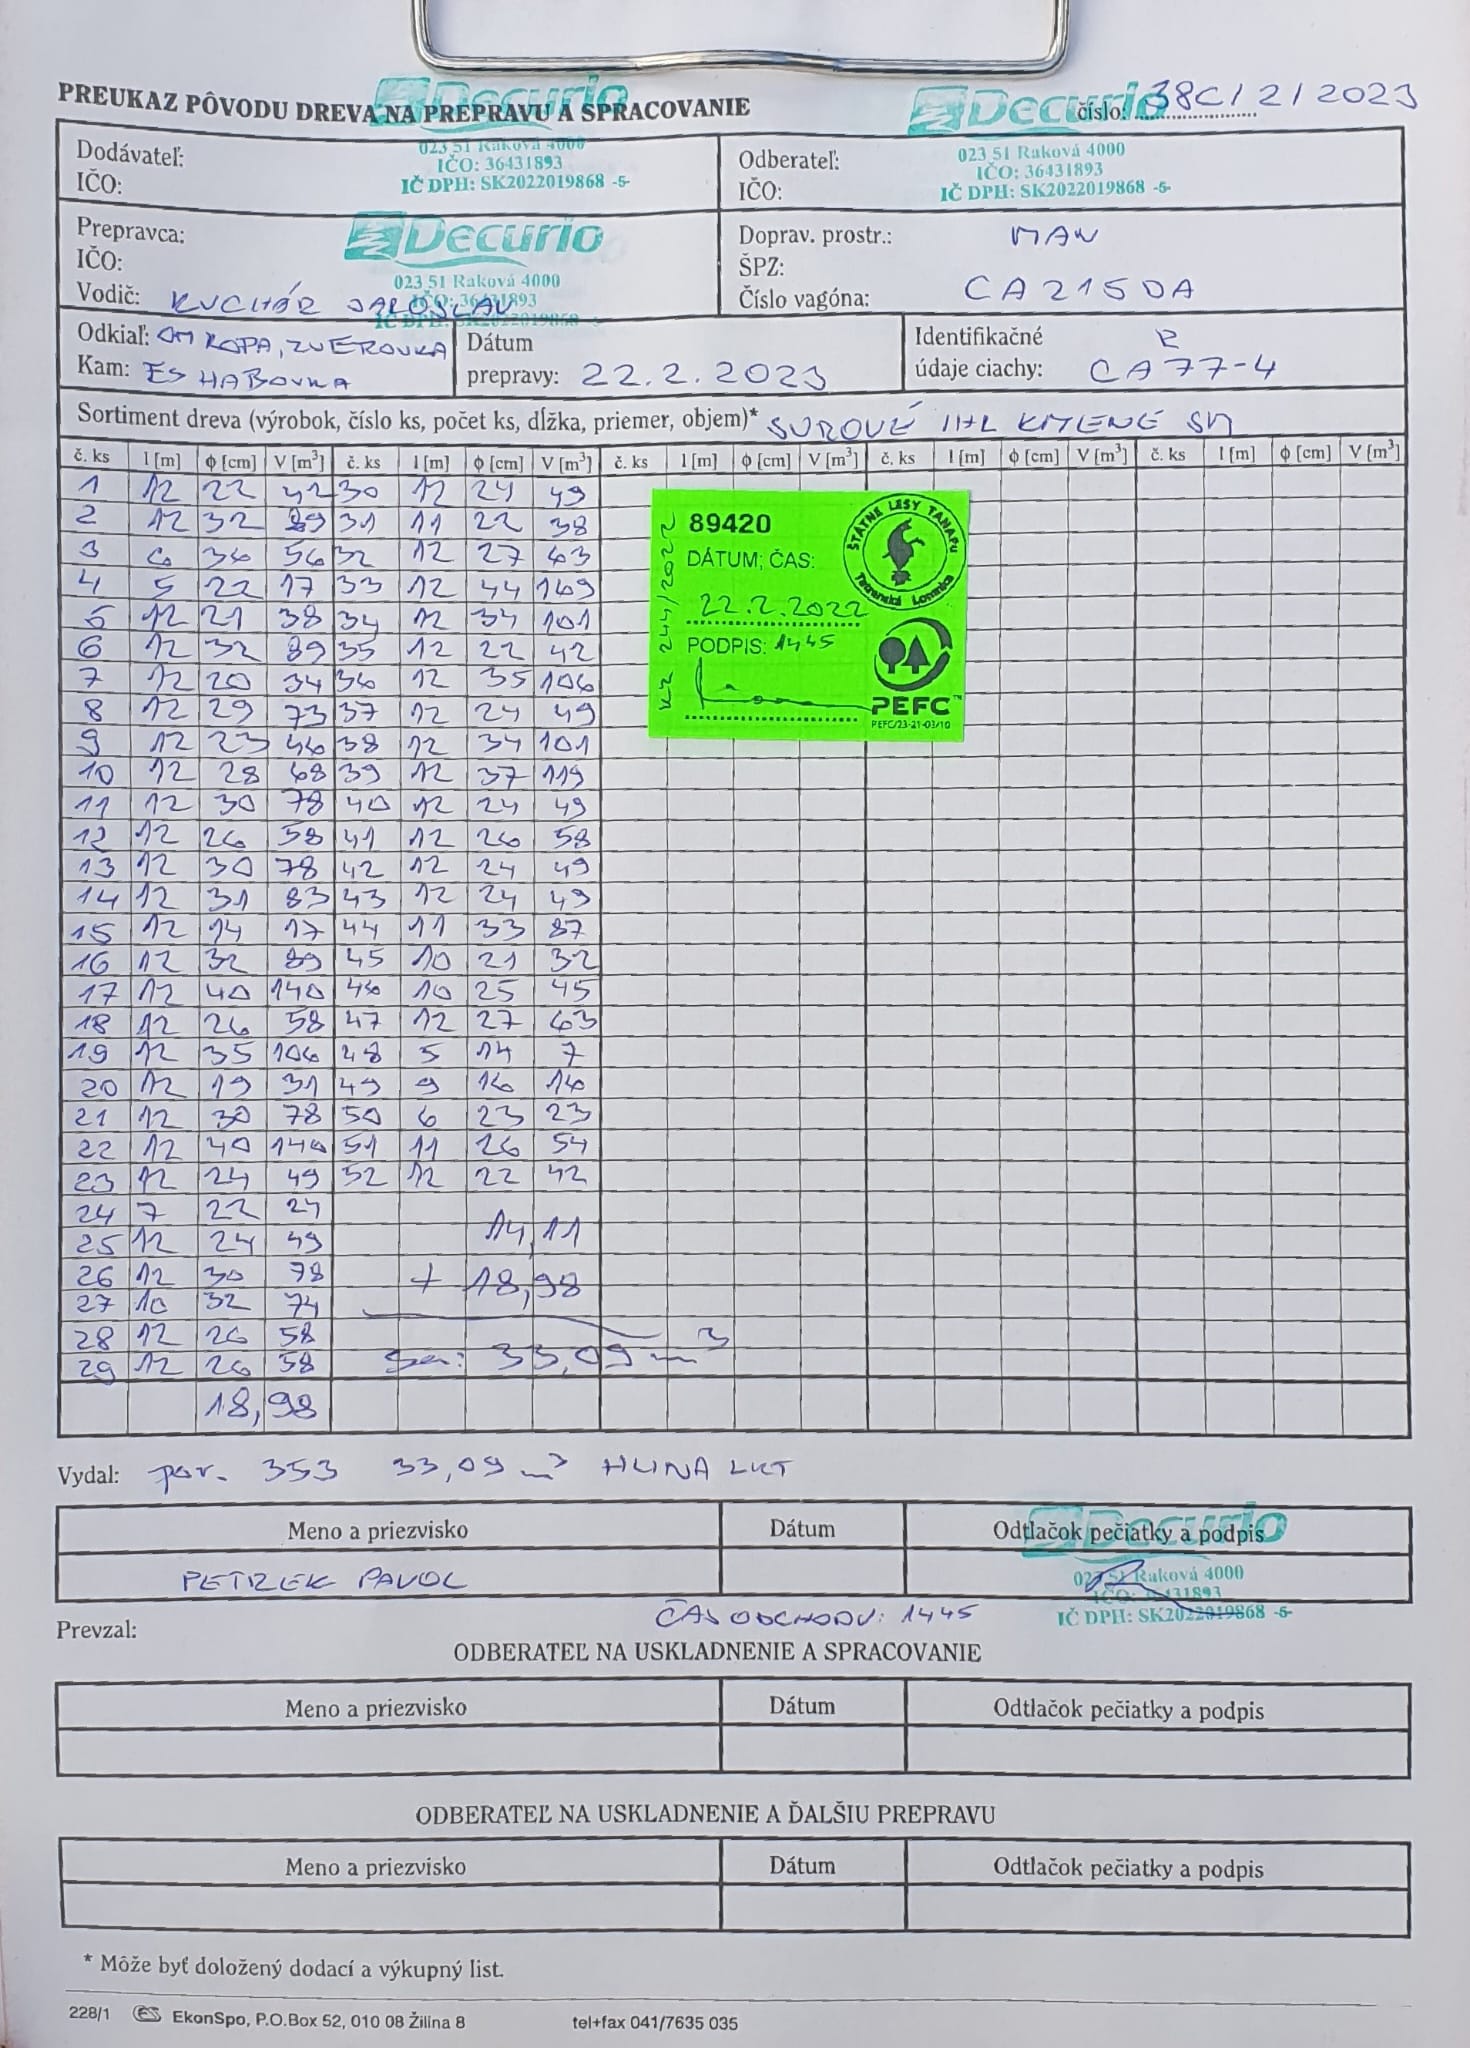 PREUKAZ PÔVODU DREVA NA PREPRAVU A SPRACOVANIE
Decurio
Decurio
číslo: 38C/2/2023
Dodávateľ:
IČO:
023 51 Raková 4000
IČO: 36431893
IČ DPH: SK2022019868 -5-
Odberateľ:
IČO:
023 51 Raková 4000
IČO: 36431893
IČ DPH: SK2022019868 -5-
Prepravca:
IČO:
Vodič: KUCHÁR JAROSLAV
Decurio
023 51 Raková 4000
IČO: 36431893
IČ DPH: SK2022019868
Doprav. prostr.: MAN
ŠPZ:
Číslo vagóna: CA215DA
Odkiaľ: OM KOPA, ZVEROVKA
Kam: ES HABOVKA
Dátum
prepravy: 22.2.2023
Identifikačné
údaje ciachy: CA77-4
Sortiment dreva (výrobok, číslo ks, počet ks, dĺžka, priemer, objem)* SUROVÉ IHL KMENE SM
č. ks l [m] ϕ [cm] V [m³] č. ks l [m] ϕ [cm] V [m³] č. ks l [m] ϕ [cm] V [m³] č. ks l [m] ϕ [cm] V [m³] č. ks l [m] ϕ [cm] V [m³]
1 12 22 42 30 12 24 49
2 12 32 89 31 11 22 38
3 6 36 56 32 12 27 63
4 5 22 17 33 12 44 169
5 12 21 38 34 12 34 101
6 12 32 89 35 12 22 42
7 12 20 34 36 12 35 106
8 12 29 73 37 12 24 49
9 12 23 46 38 12 34 101
10 12 28 68 39 12 37 119
11 12 30 78 40 12 24 49
12 12 26 58 41 12 26 58
13 12 30 78 42 12 24 49
14 12 31 83 43 12 24 49
15 12 14 17 44 11 33 87
16 12 32 89 45 10 21 32
17 12 40 140 46 10 25 45
18 12 26 58 47 12 27 63
19 12 35 106 48 5 14 7
20 12 19 31 49 9 16 16
21 12 30 78 50 6 23 23
22 12 40 140 51 11 26 54
23 12 24 49 52 12 22 42
24 7 22 24
25 12 24 49 14,11
26 12 30 78 + 18,98
27 10 32 74
28 12 26 58
29 12 26 58 33,09 m³
18,98
89420
DÁTUM; ČAS:
22.2.2022
PODPIS: 1445
244/2022
ŠTÁTNE LESY TANAPU
Tatranská Lomnica
PEFC™
PEFC/23-21-03/10
Vydal: por. 353 33,09 m³ HLINA LKT
Meno a priezvisko Dátum Odtlačok pečiatky a podpis
PETREK PAVOL
Decurio
023 51 Raková 4000
IČO: 36431893
IČ DPH: SK2022019868 -5-
ČAS ODCHODU: 1445
Prevzal:
ODBERATEĽ NA USKLADNENIE A SPRACOVANIE
Meno a priezvisko Dátum Odtlačok pečiatky a podpis
ODBERATEĽ NA USKLADNENIE A ĎALŠIU PREPRAVU
Meno a priezvisko Dátum Odtlačok pečiatky a podpis
* Môže byť doložený dodací a výkupný list.
228/1 ES EkonSpo, P.O.Box 52, 010 08 Žilina 8 tel+fax 041/7635 035